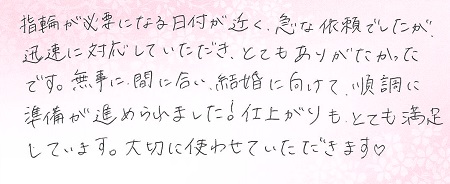 指輪が必要になる日付が近く、急な依頼でしたが、
迅速に対応していただき、とてもありがたかった
です。無事に、間に合い、結婚に向けて、順調に
準備が進められました！仕上がりも、とても満足
しています。大切に使わせていただきます♡